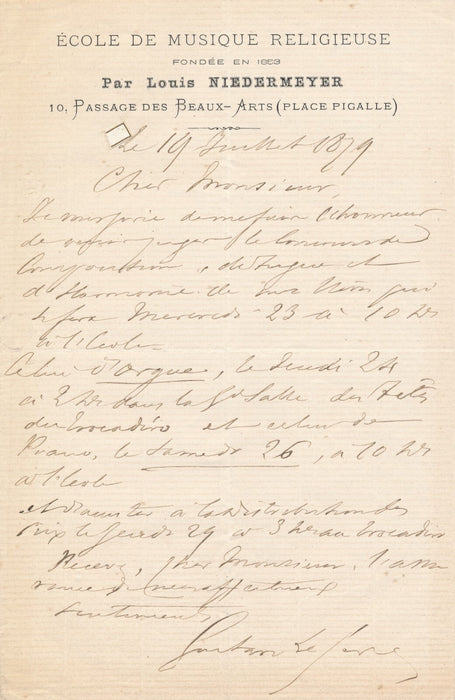 ÉCOLE DE MUSIQUE RELIGIEUSE
FONDÉE EN 1853
Par Louis NIEDERMEYER
10, PASSAGE DES BEAUX-ARTS (PLACE PIGALLE)
Le 19 Juillet 1879
Cher Monsieur,
Je vous prie de me faire l'honneur
de venir juger le Concours de
Composition, de fugue et
d'Harmonie de nos élèves qui
se fera Mercredi 23 à 10 hrs
à l'École
Celui d'orgue, le Jeudi 24
à 2 hrs dans la Gde Salle des Fêtes
du Trocadéro et celui de
Piano, le Samedi 26, à 10 hrs
à l'école
et d'assister à la Distribution des
Prix le 29 à 3 hrs au Trocadéro
Recevez, cher Monsieur, l'assu
rance de mes affectueux
sentiments
Gustave Lefèvre